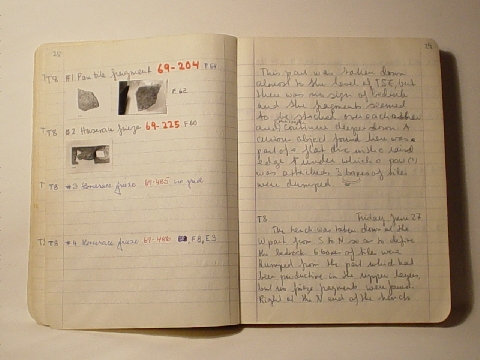 28
T8 #1 Pan tile fragment 69-204 P.61
P.62
T8 #2 Horserace frieze 69-225 P.60
T8 #3 Horserace frieze 69-482 no grid
T8 #4 Horserace frieze F8, E9
This part was taken down
almost to the level of T5E, but
there was no sign of bedrock
and the fragments seemed
to be stacked over each other
and continue deeper down. A
curious object found here was a
part of a flat disc with a raised
edge & under which a
was attached. 3 boxes of tiles
were dumped.
T8 Friday June 27
The trench was taken down at the
W part from S to N so as to define
the bedrock. 6 boxes of tiles were
dumped from the part which had
been productive in the upper layers
but no frieze fragments were found.
Right at the N end of the trench